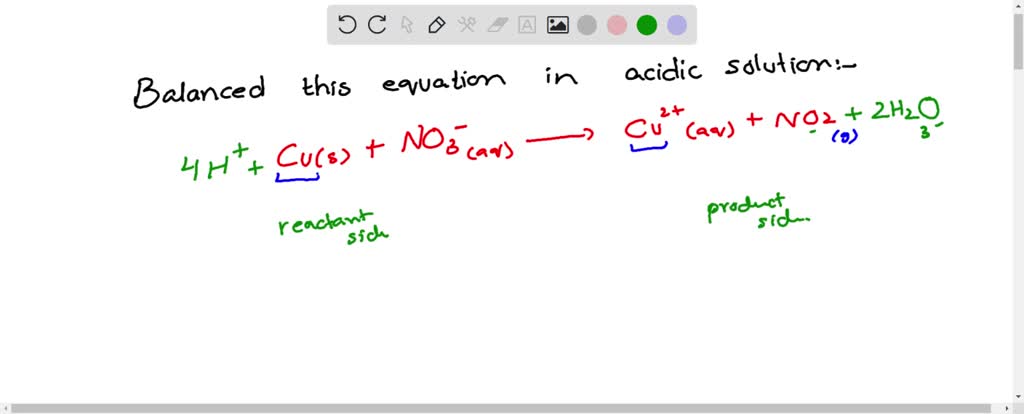 Balanced this equation in acidic solution:-
4H⁺ + Cu(s) + NO₃⁻(aq) → Cu²⁺(aq) + NO₂(g) + 2H₂O
3
reactant side
product side